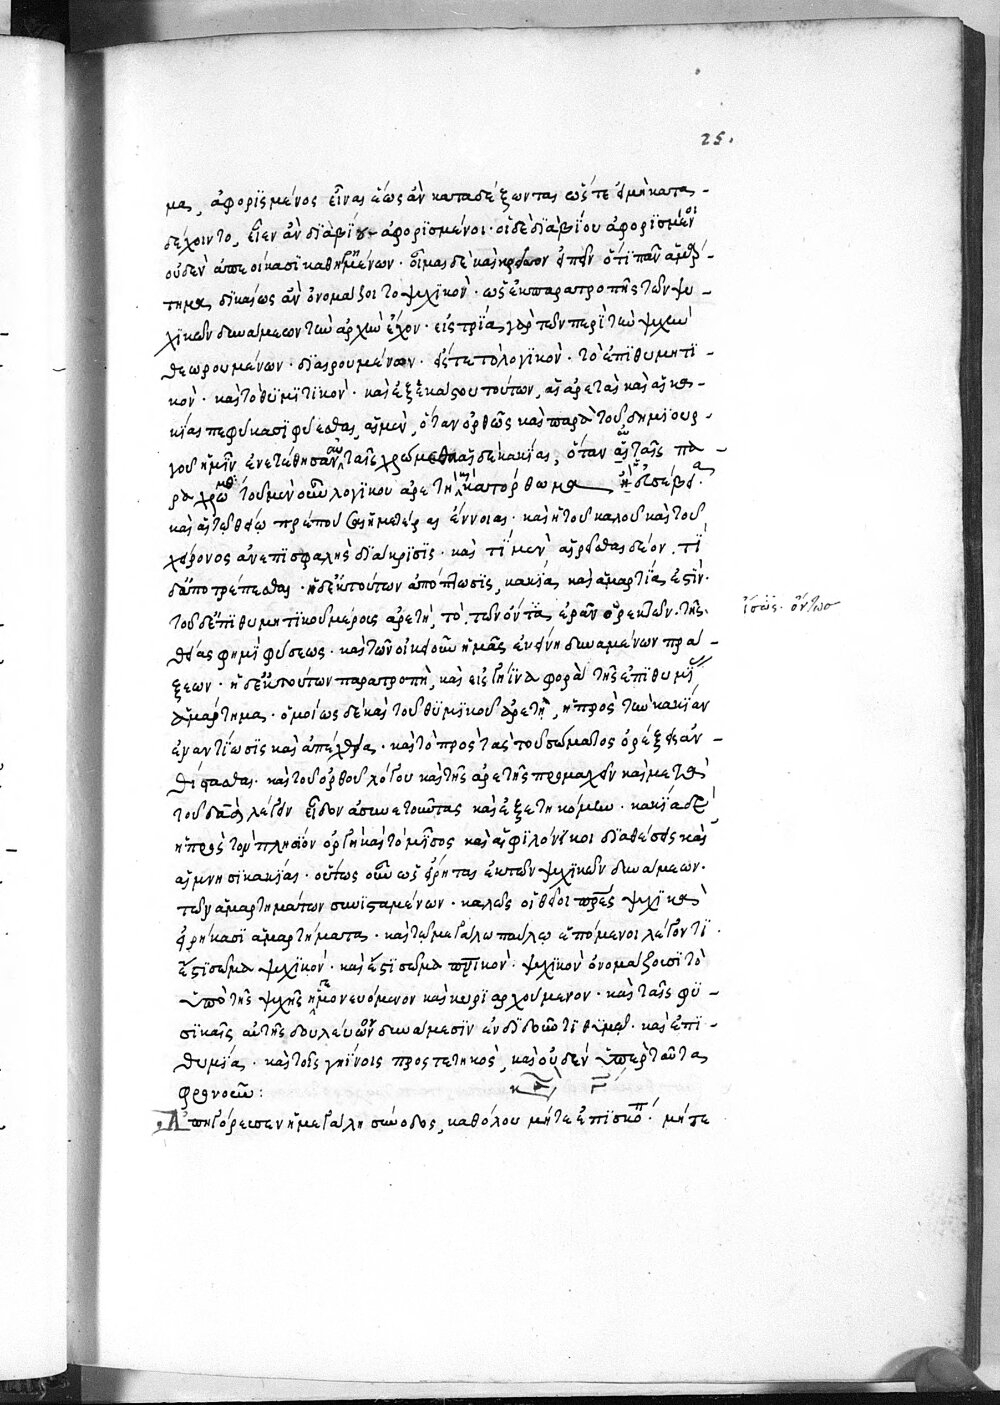 25.
μας, ἀφορισμένος εἶναι ἕως ἂν καταδέξωνται ὥστε εἰ μὴ κατα-
δέχοιντο, εἶεν ἂν διαβίου ἀφορισμένοι· οἱ δὲ διαβίου ἀφορισμένοι
οὐδὲν ἀπεοίκασι καθηρημένων· οἶμαι δὲ καὶ εἰπεῖν ὅτι πᾶν ἁμάρ-
τημα, δικαίως ἂν ὀνομάζοιτο ψυχικόν· ὡς ἐκ παρατροπῆς τῶν ψυ-
χικῶν δυνάμεων τὴν ἀρχὴν ἔχον· εἰς τρία γὰρ τῶν περὶ τὴν ψυχὴν
θεωρουμένων· διαιρουμένων· εἴς τε τὸ λογικόν· τὸ ἐπιθυμητι-
κόν· καὶ τὸ θυμητικόν· καὶ ἐξ ἑκάστου τούτων, αἱ ἀρεταὶ καὶ αἱ κα-
κίαι πεφύκασι φύεσθαι, αἱ μὲν, ὅταν ὀρθῶς καὶ παρὰ τοῦ δημιουρ-
γοῦ ἡμῖν ἐνετέθησαν ταῖς χρώμεθα αἱ δὲ κακίαι, ὅταν αὐταῖς πα-
ραχρώμεθα· τοῦ μὲν οὖν λογικοῦ ἀρετὴ καὶ κατόρθωμα ἡ εὐσέβεια·
καὶ αἱ τῷ θεῷ πρέπουσαι ἡμετέραι ἔννοιαι· καὶ ἡ τοῦ καλοῦ καὶ τοῦ
χείρονος ἀνεπισφαλὴς διάκρισις· καὶ τί μὲν αἱρεῖσθαι δέον, τί
δ' ἀποτρέπεσθαι· ἡ δ' ἐκ τούτων ἀπόπτωσις, κακία, καὶ ἁμαρτία ἐστίν·
τοῦ δ' ἐπιθυμητικοῦ μέρους ἀρετὴ, τὸ, τῶν ὄντα ἐρᾶν ὀρεκτῶν· τῆς
θείας φημὶ φύσεως· καὶ τῶν οἰκειοῦν ἡμᾶς ἐκείνῃ δυναμένων πρά-
ξεων· ἡ δ' ἐκ τούτων παρατροπὴ, καὶ εἰς γήϊνα φορὰ τῆς ἐπιθυμί
ἁμάρτημα· ὁμοίως δὲ καὶ τοῦ θυμικοῦ ἀρετὴ, ἡ πρὸς τὴν κακίαν
ἐναντίωσις καὶ ἀπέχθεια· καὶ τὸ πρὸς τὰς τοῦ σώματος ὀρέξεις ἀν-
θίστασθαι· καὶ τοῦ ὀρθοῦ λόγου καὶ τῆς ἀρετῆς προμαχεῖν καὶ μετὰ
τοῦ δαδ λέγειν εἶδον ἀσυνετοῦντας καὶ ἐξετηκόμην· κακία δὲ,
ἡ πρὸς τὸν πλησίον ὀργὴ καὶ τὸ μῖσος καὶ αἱ φιλόνεικοι διαθέσεις καὶ
αἱ μνησικακίαι· οὕτως οὖν ὡς εἴρηται ἐκ τῶν ψυχικῶν δυνάμεων·
τῶν ἁμαρτημάτων συνισταμένων· καλῶς οἱ θεῖοι πρες ψυχικὰ
εἰρήκασι ἁμαρτήματα· καὶ τῷ μεγάλῳ παύλῳ ἑπόμενοι λέγοντι·
ἔστι σῶμα ψυχικόν· καὶ ἔστι σῶμα πνικόν· ψυχικὸν ὀνομάζουσι τὸ
ὑπὸ τῆς ψυχῆς ἡγεμονευόμενον καὶ κυριαρχούμενον· καὶ ταῖς φυ-
σικαῖς αὐτῆς δουλεύων δυνάμεσιν ἐνδιδοῦν τι θυμῷ· καὶ ἐπι-
θυμίᾳ· καὶ τοῖς γηΐνοις προστετηκὸς, καὶ οὐδὲν ὑπὲρ ταῦτα
φρονοῦν:
Ἀπηγόρευσεν ἡ μεγάλη σύνοδος, καθόλου μήτε ἐπισκόπ· μήτε
ἴσως· ὄντως